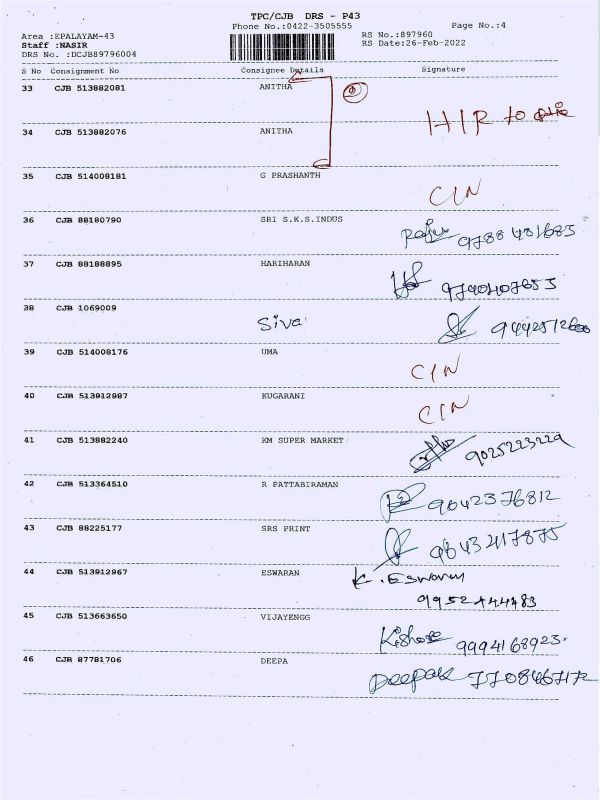 TPC/CJB DRS - P43
Phone No.:0422-3505555 Page No.:4
Area :EPALAYAM-43 RS No.:897960
Staff :NASIR RS Date:26-Feb-2022
DRS No. :DCJB89796004
S No Consignment No Consignee Details Signature
33 CJB 513882081 ANITHA
HIR to
34 CJB 513882076 ANITHA
35 CJB 514008181 G PRASHANTH
CIN
36 CJB 88180790 SRI S.K.S.INDUS
9788481685
37 CJB 88188895 HARIHARAN
38 CJB 1069009
Siva
39 CJB 514008176 UMA
CIN
40 CJB 513912987 KUGARANI
CIN
41 CJB 513882240 KM SUPER MARKET
9025223229
42 CJB 513364510 R PATTABIRAMAN
9842376812
43 CJB 88225177 SRS PRINT
44 CJB 513912967 ESWARAN
K. Eswaran
45 CJB 513663650 VIJAYENGG
Kishore 9994168923
46 CJB 87781706 DEEPA
Deepak 7708467172